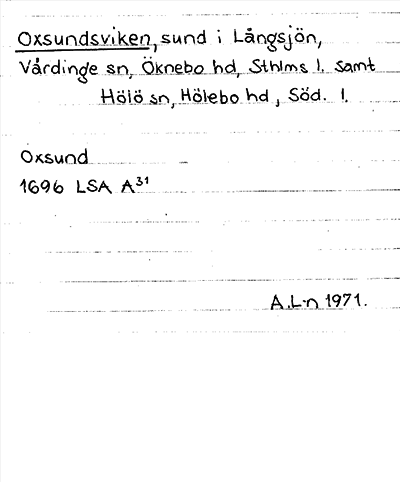 Oxsundsviken, sund i Långsjön,
Vårdinge sn, Öknebo hd, Sthlms l. samt
Hölö sn, Hölebo hd, Söd. l.
Oxsund
1696 LSA A31
A.L-n 1971.